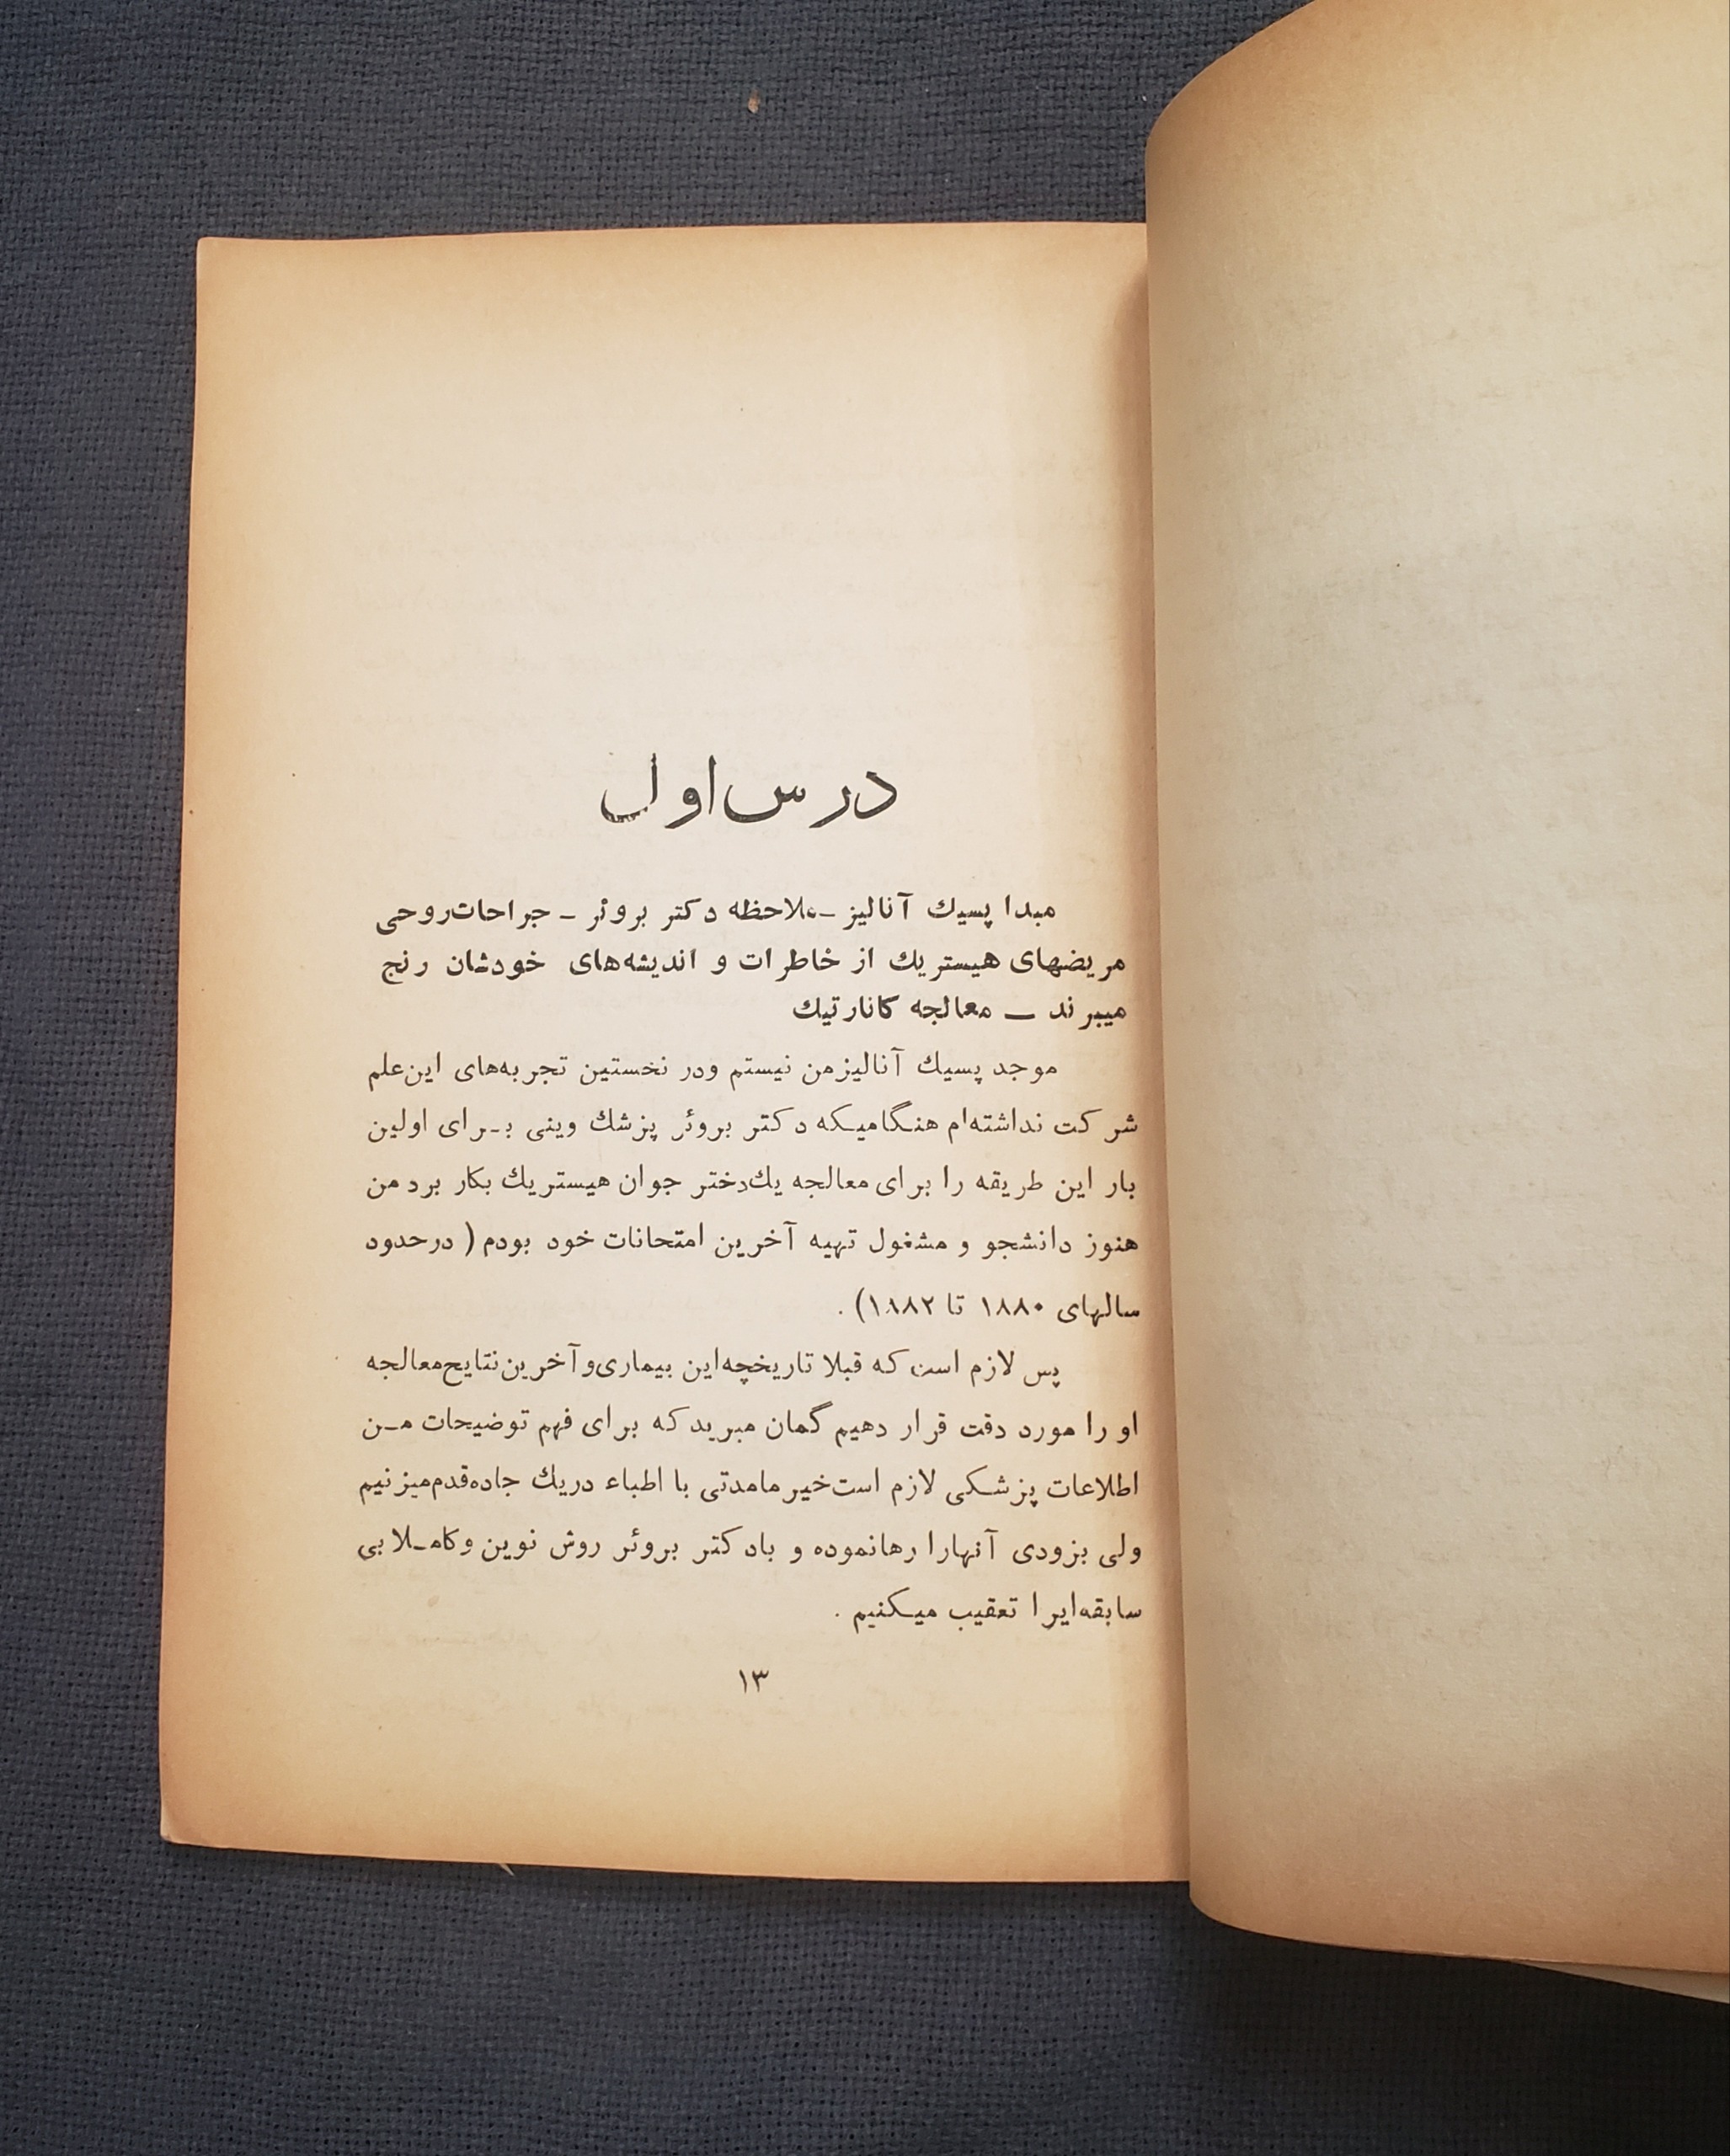 درس اول
مبدا پسیك آنالیز ـ ملاحظه دكتر بروئر ـ جراحات روحی
مریضهای هیستریك از خاطرات و اندیشه‌های خودشان رنج
میبرند ــ معالجه كانارتیك
موجد پسیك آنالیز من نیستم ودر نخستین تجربه‌های این علم
شركت نداشته‌ام هنگامیكه دكتر بروئر پزشك وینی بـرای اولین
بار این طریقه را برای معالجه یك دختر جوان هیستریك بكار برد من
هنوز دانشجو و مشغول تهیه آخرین امتحانات خود بودم ( درحدود
سالهای ۱۸۸۰ تا ۱۸۸۲) .
پس لازم است كه قبلا تاریخچه این بیماری و آخرین نتایج معالجه
او را مورد دقت قرار دهیم گمان مبرید كه برای فهم توضیحات مـن
اطلاعات پزشكی لازم است خیر مامدتی با اطباء دریك جاده قدم میزنیم
ولی بزودی آنهارا رهانموده و بادكتر بروئر روش نوین وكامـلا بی
سابقه‌ایرا تعقیب میكنیم .
۱۳